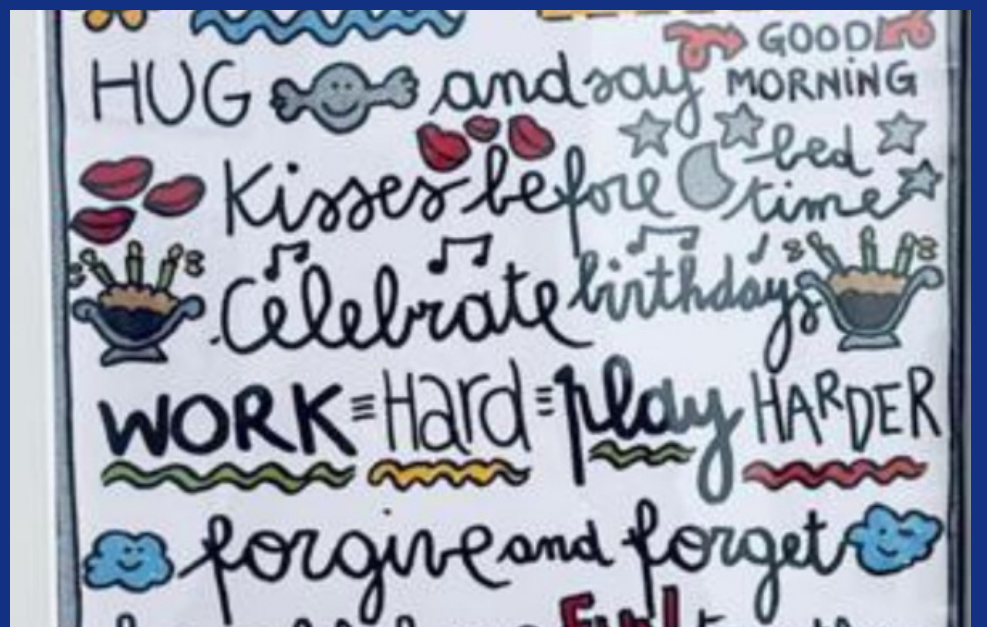 HUG and say GOOD MORNING
Kisses before bed time
Celebrate birthdays
WORK Hard play HARDER
forgive and forget